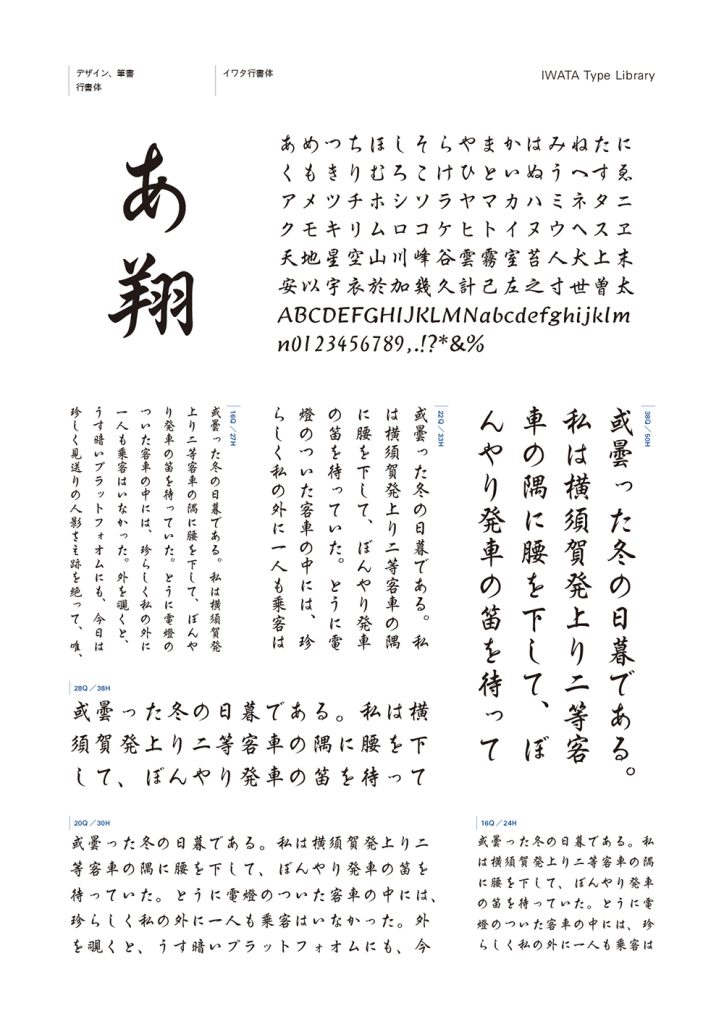 デザイン、筆書
行書体
イワタ行書体
IWATA Type Library
あ
翔
あめつちほしそらやまかはみねたに
くもきりむろこけひといぬうへすゑ
アメツチホシソラヤマカハミネタニ
クモキリムロコケヒトイヌウヘスヱ
天地星空山川峰谷雲霧室苔人犬上末
安以宇衣於加幾久計己左之寸世曽太
ABCDEFGHIJKLMNabcdefghijklm
n0123456789,.!?*&%
38Q/50H
或曇った冬の日暮である。
私は横須賀発上り二等客
車の隅に腰を下して、ぼ
んやり発車の笛を待って
22Q/33H
或曇った冬の日暮である。私
は横須賀発上り二等客車の隅
に腰を下して、ぼんやり発車
の笛を待っていた。とうに電
燈のついた客車の中には、珍
らしく私の外に一人も乗客は
16Q/27H
或曇った冬の日暮である。私は横須賀発
上り二等客車の隅に腰を下して、ぼんや
り発車の笛を待っていた。とうに電燈の
ついた客車の中には、珍らしく私の外に
一人も乗客はいなかった。外を覗くと、
うす暗いプラットフォオムにも、今日は
珍しく見送りの人影さえ跡を絶って、唯、
28Q/38H
或曇った冬の日暮である。私は横
須賀発上り二等客車の隅に腰を下
して、ぼんやり発車の笛を待って
20Q/30H
或曇った冬の日暮である。私は横須賀発上り二
等客車の隅に腰を下して、ぼんやり発車の笛を
待っていた。とうに電燈のついた客車の中には、
珍らしく私の外に一人も乗客はいなかった。外
を覗くと、うす暗いプラットフォオムにも、今
16Q/24H
或曇った冬の日暮である。私
は横須賀発上り二等客車の隅
に腰を下して、ぼんやり発車
の笛を待っていた。とうに電
燈のついた客車の中には、珍
らしく私の外に一人も乗客は